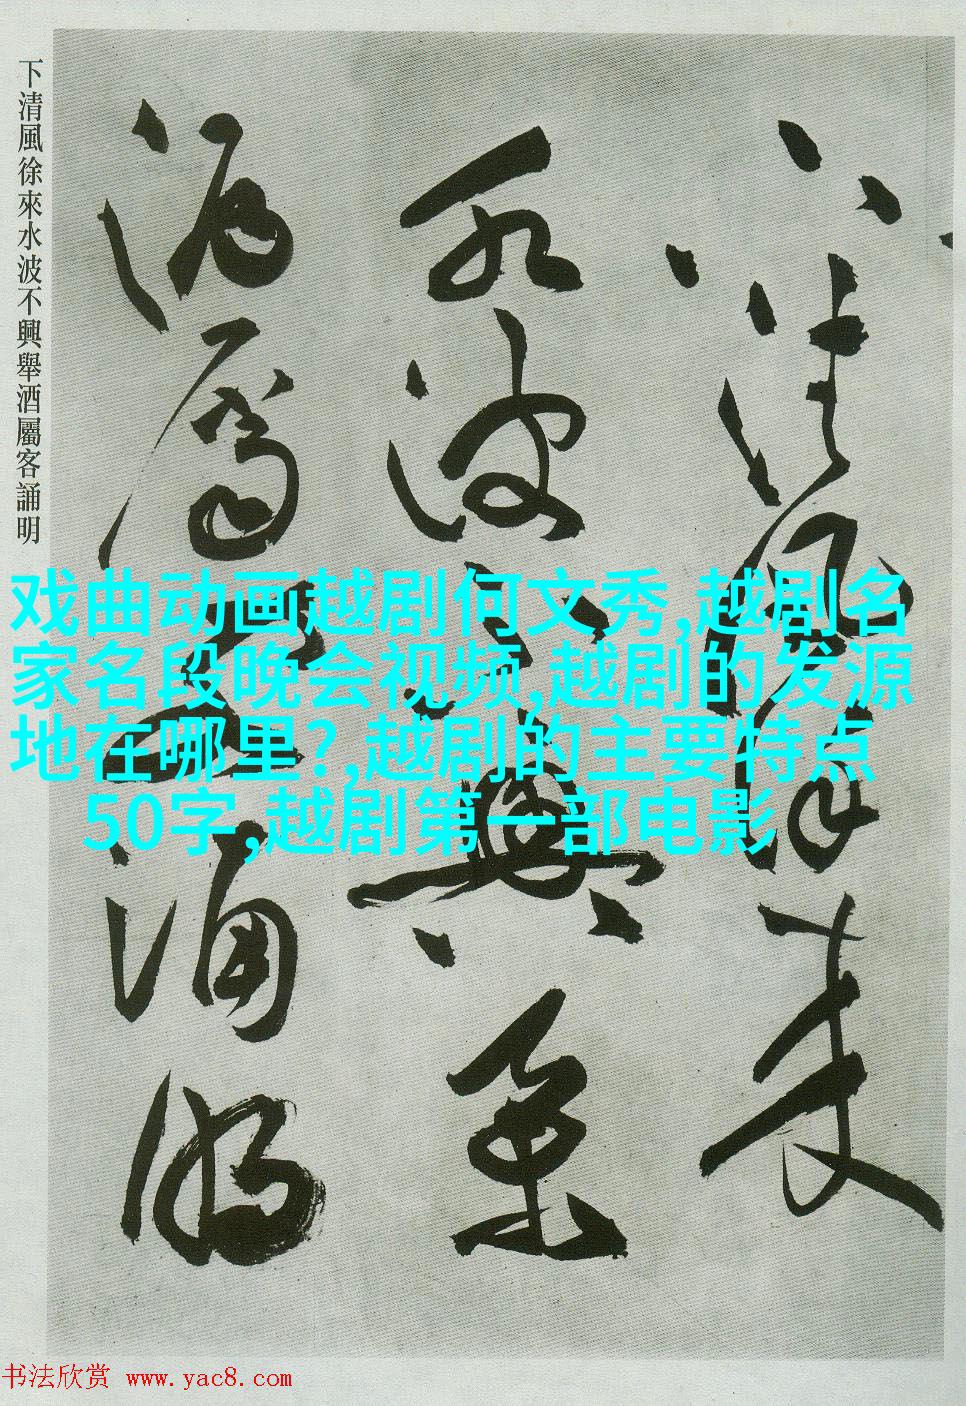 下清風徐來水波不興舉酒屬客誦明
下清風徐來
水波不興舉
酒屬客誦明
戏曲动画越剧何文秀,越剧名
家名段晚会视频,越剧的发源
地在哪里?,越剧的主要特点
50字,越剧第一部电影
书法欣赏 www.yac8.com